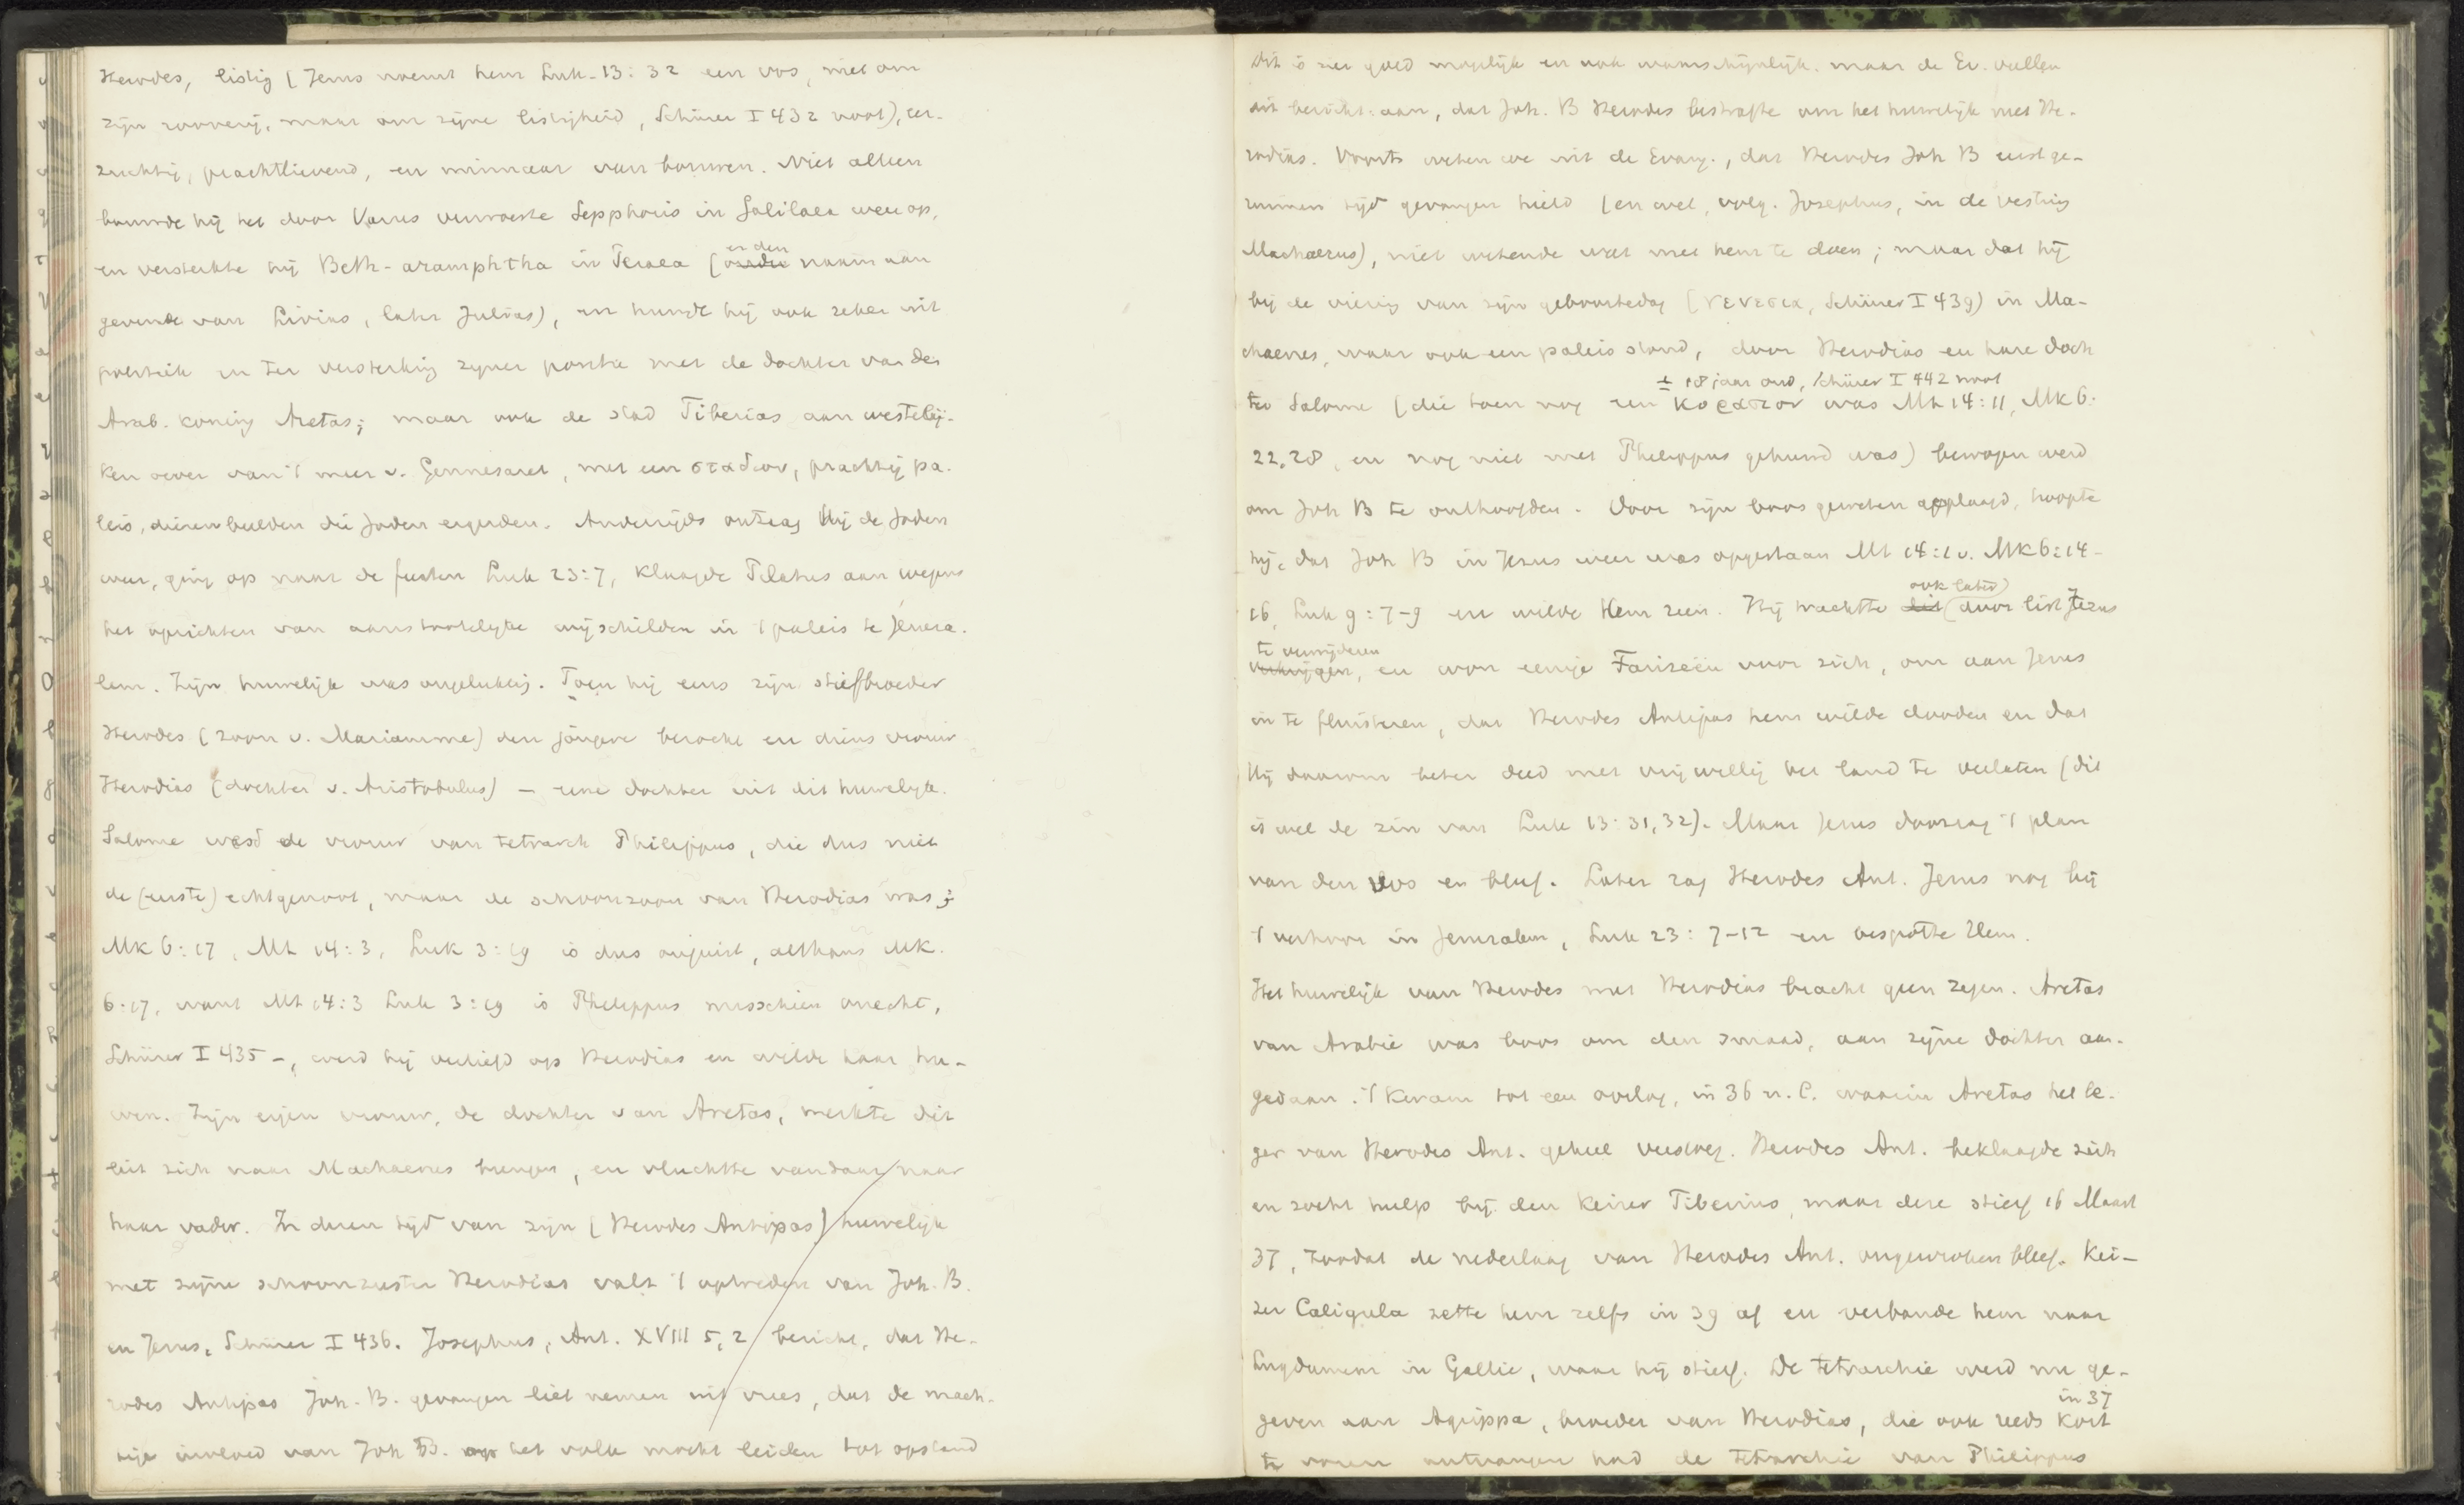 Herodes, listig (Jezus noemt hem Luk. 13:32 een vos, niet om
zijn rooverij, maar om zijne listigheid, Schürer I 432 noot), eer-
zuchtig, prachtlievend, en minnaar van bouwen. Niet alleen
bouwde hij het door Varus verwoeste Sepphoris in Galilaea weer op,
en versterkte hij Beth-aramphtha in Peraea (en den naam aan
gevende van Livias, later Julias), en huwde hij ook zeker uit
politiek en ter versterking zijner positie met de dochter van den
Arab. koning Aretas; maar ook de stad Tiberias aan westelij-
ken oever van 't meer v. Gennesaret, met een σταδιον, prachtig pa-
leis, dierenbeelden die Joden ergerden. Anderzijds ontzag Hij de Joden
weer, ging op naar de feesten Luk 23:7, klaagde Pilatus aan wegens
het oprichten van aanstootelijke wijschilden in 't paleis te Jeruza-
lem. Zijn huwelijk was ongelukkig. Toen hij eens zijn stiefbroeder
Herodes (zoon v. Mariamme) den jongere bezocht en diens vrouw
Herodias (dochter v. Aristobulus) - eene dochter uit dit huwelijk.
Salome werd de vrouw van tetrarch Philippus, die dus niet
de (eerste) echtgenoot, maar de schoonzoon van Herodias was;
Mk 6:17, Mt 14:3, Luk 3:19 is dus onjuist, althans Mk.
6:17, want Mt 14:3 Luk 3:19 is Philippus misschien onecht,
Schürer I 435 -, werd hij verliefd op Herodias en wilde haar hu-
wen. Zijn eigen vrouw, de dochter van Aretas, merkte dit
liet zich naar Machaerus brengen, en vluchtte vandaar naar
haar vader. In dezen tijd van zijn (Herodes Antipas) huwelijk
met zijne schoonzuster Herodias valt 't optreden van Joh. B.
en Jezus, Schürer I 436. Josephus, Ant. XVIII 5,2 bericht, dat He-
rodes Antipas Joh. B. gevangen liet nemen uit vrees, dat de mach-
tige invloed van Joh B. op het volk mocht leiden tot opstand
Dit is zeer goed mogelijk en ook waarschijnlijk. maar de Ev. vullen
dit bericht aan, dat Joh. B Herodes bestrafte om het huwelijk met He-
rodias. Voorts weten we uit de Evang., dat Herodes Joh B eerst ge-
ruimen tijd gevangen hield (en wel, volg. Josephus, in de vesting
Machaerus), niet wetende wat met hem te doen; maar dat hij
bij de viering van zijn geboortedag (γενεσια, Schürer I 439) in Ma-
chaerus, waar ook een paleis stond, door Herodias en hare doch
± 18 jaar oud, Schürer I 442 noot
ter Salome (die toen nog een κορασιον was Mt 14:11, Mk 6:
22.28, en nog niet met Philippus gehuwd was) bewogen werd
om Joh B te onthoofden. Door zijn boos geweten geplaagd, hoopte
hij, dat Joh B in Jezus weer was opgestaan Mt 14:1 v. Mk 6:14-
16, Luk 9:7-9 en wilde Hem zien. Hij trachtte dit (ook later) door list Jezus
te verwijderen
verkrijgen, en won eenige Farizeën voor zich, om aan Jezus
in te fluisteren, dat Herodes Antipas hem wilde dooden en dat
Hij daarom beter deed met vrijwillig het land te verlaten (dit
is wel de zin van Luk 13:31,32). Maar Jezus doorzag 't plan
van den vos en bleef. Later zag Herodes Ant. Jezus nog bij
't verhoor in Jeruzalem, Luk 23:7-12 en bespotte Hem.
Het huwelijk van Herodes met Herodias bracht geen zegen. Aretas
van Arabië was boos om den smaad, aan zijne dochter aan-
gedaan. 't Kwam tot een oorlog, in 36 n. C. waarin Aretas het le-
ger van Herodes Ant. geheel versloeg. Herodes Ant. beklaagde zich
en zocht hulp bij den keizer Tiberius, maar deze stierf 16 Maart
37, zoodat de nederlaag van Herodes Ant. ongewroken bleef. Kei-
zer Caligula zette hem zelfs in 39 af en verbande hem naar
Lugdunum in Gallië, waar hij stierf. De tetrarchie werd nu ge-
geven aan Agrippa, broeder van Herodias, die ook reeds in 37 kort
te voren ontvangen had de tetrarchie van Philippus